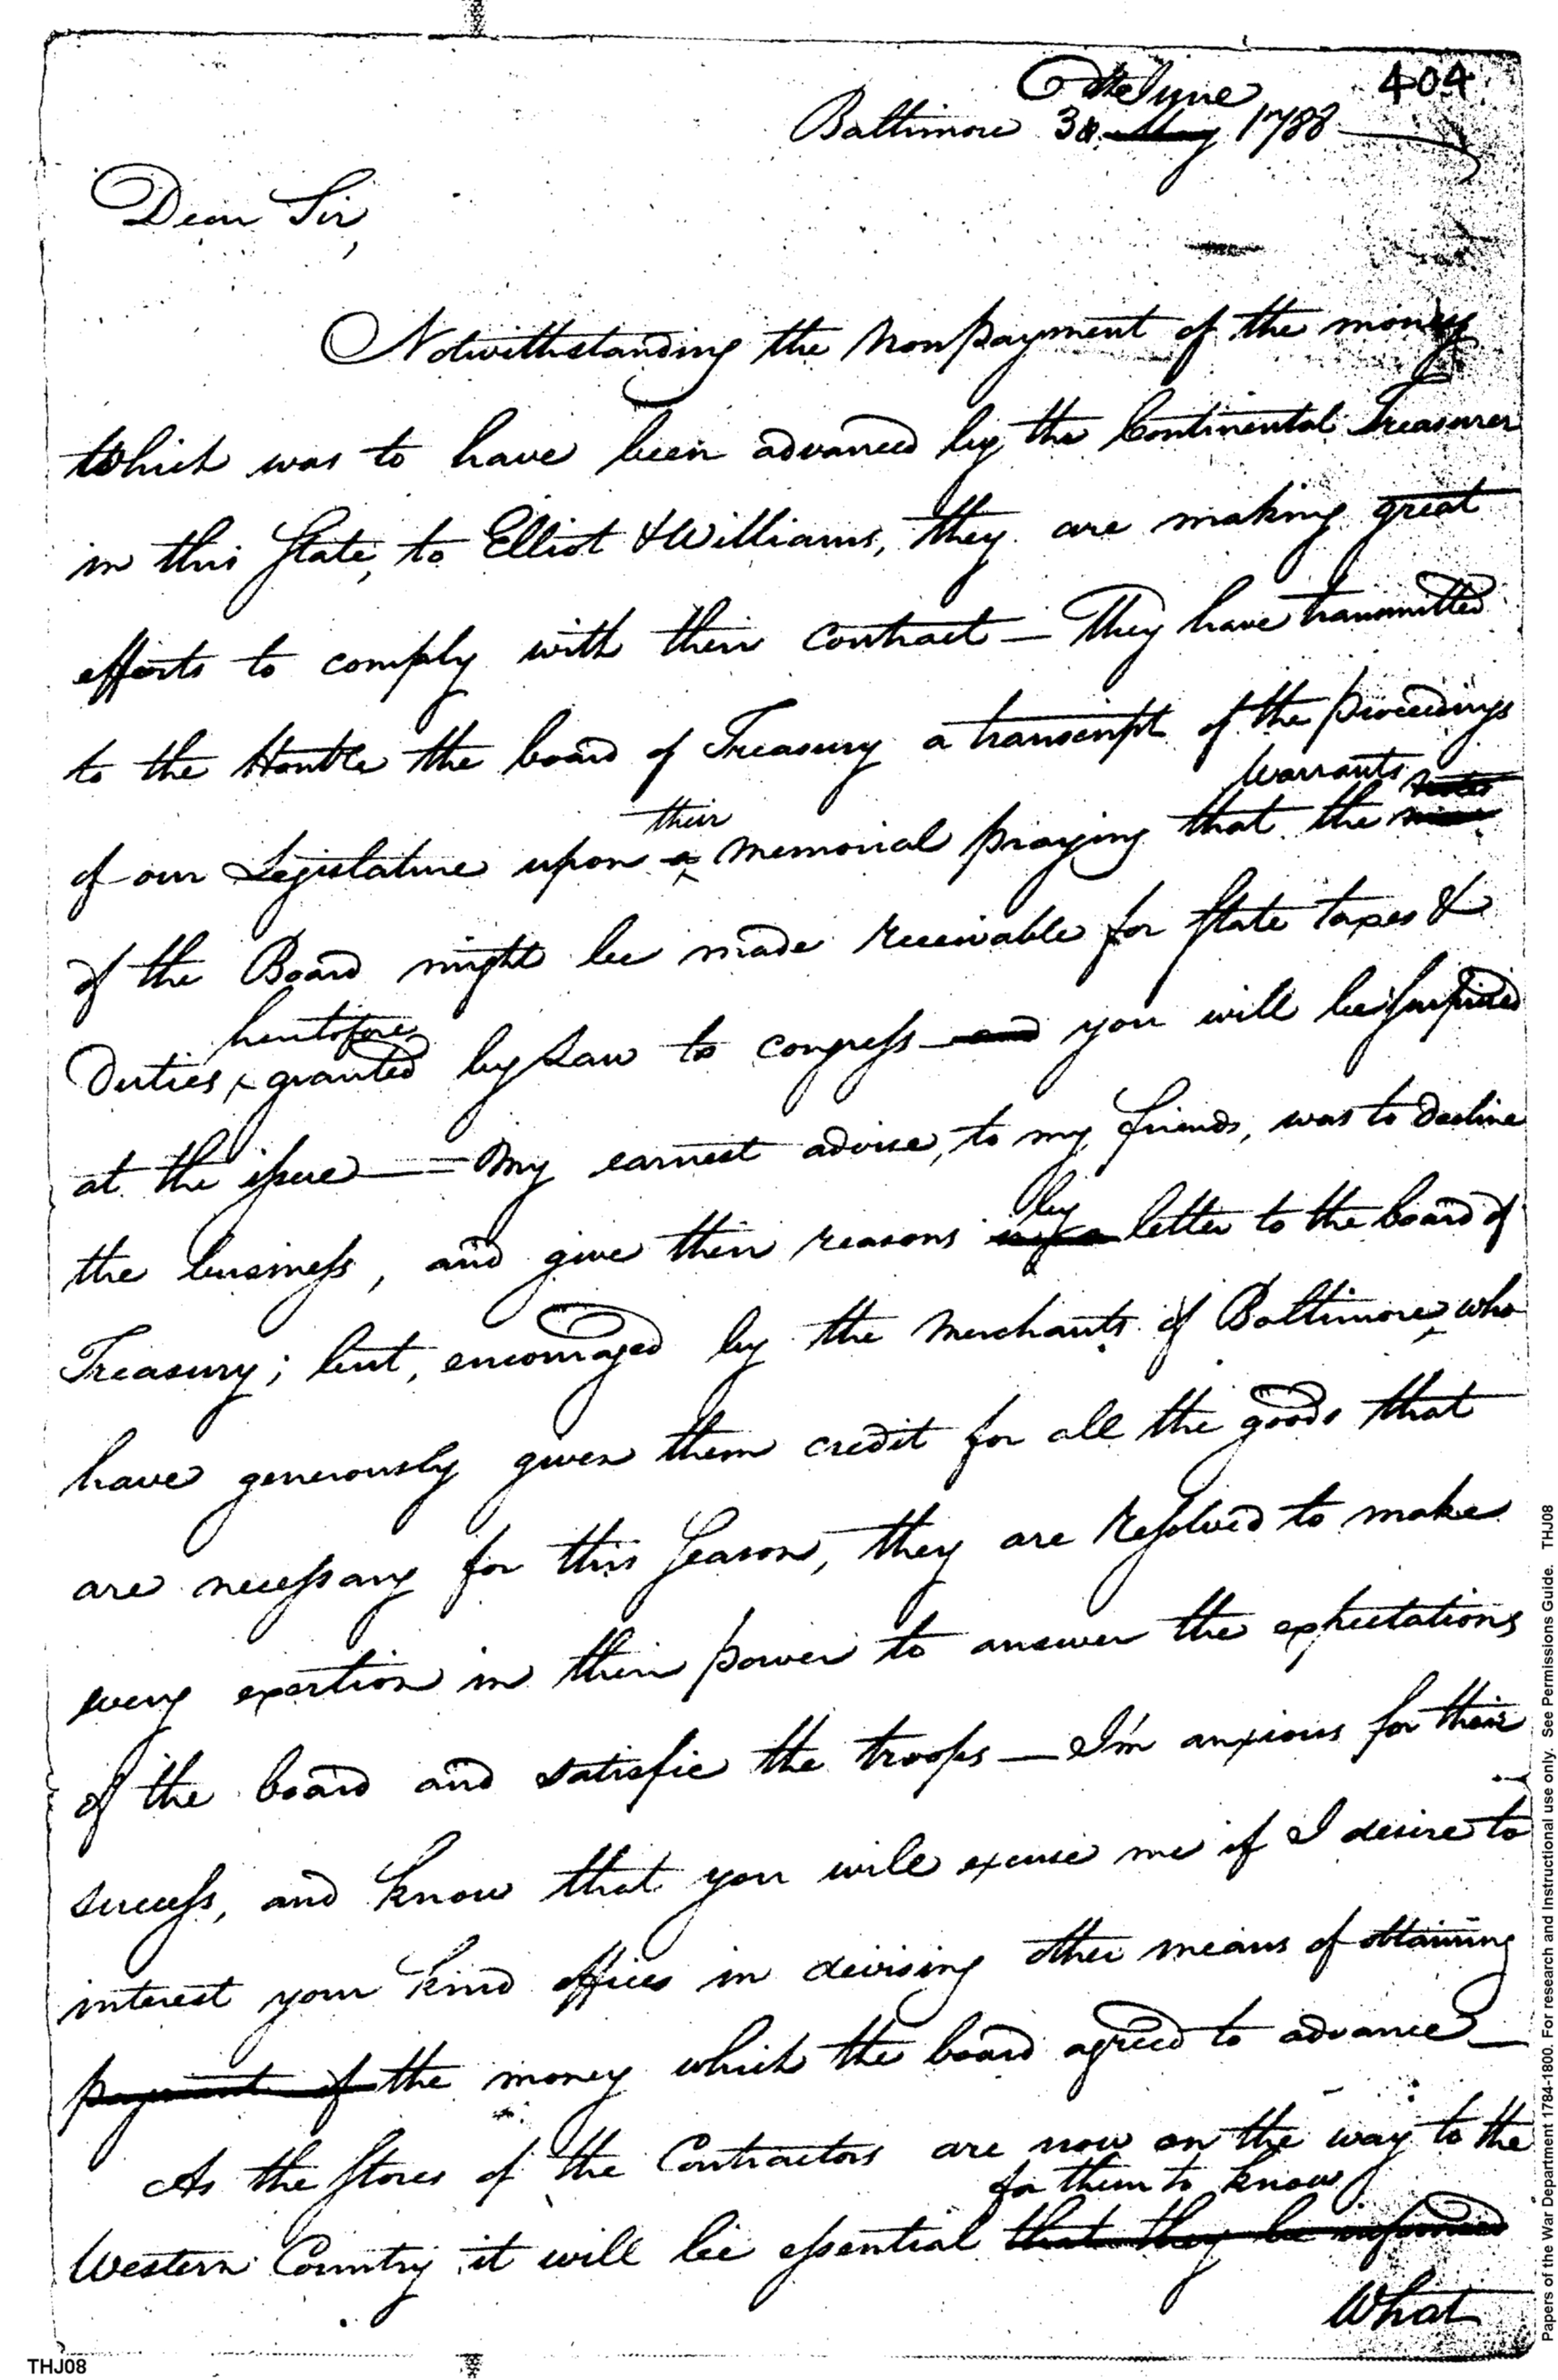 404
6th June
Baltimore 30. May 1788
Dear Sir,
Notwithstanding the nonpayment of the money
which was to have been advanced by the Continental Treasurer
in this State, to Elliot & Williams, they are making great
efforts to comply with their contract — They have transmitted
to the Honble the board of Treasury a transcript of the proceedings
warrants notes
their
of our Legislature upon a memorial praying that the
of the Board might be made receivable for State taxes &
heretofore
Duties granted by Law to congress — and you will be surprised
at the issue — My earnest advise, to my friends, was to decline
by
the business, and give their reasons in a letter to the board of
Treasury; but, encouraged by the Merchants of Baltimore, who
have generously given them credit for all the goods that
are necessary for this Season, they are resolved to make
every exertion in their power to answer the expectations
of the board and satisfie the troops — I'm anxious for their
success, and know that you will excuse me if I desire to
interest your kind offices in devising other means of obtaining
payment of the money which the board agreed to advance —
As the Stores of the Contractors are now on the way to the
for them to know
Western Country it will be essential that they be informed
What
THJ08
Papers of the War Department 1784-1800. For research and Instructional use only. See Permissions Guide. THJ08